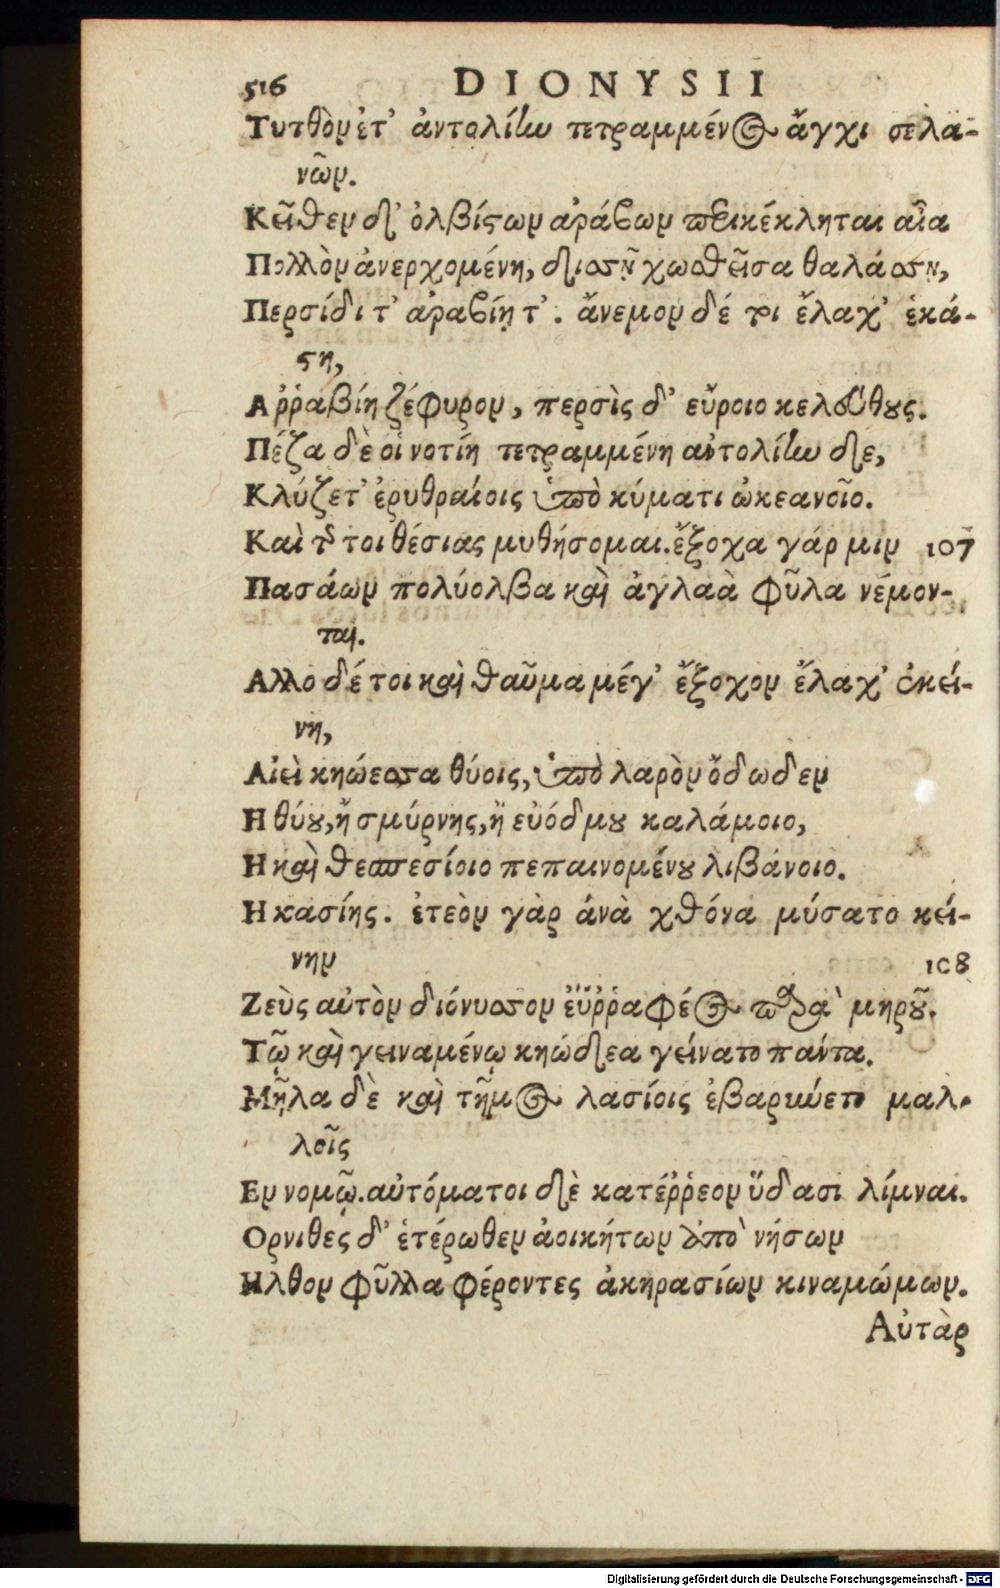 516 DIONYSII
Τυτθὸν ἐτ' ἀντολίην τετραμμένος ἄγχι σελα-
νῶν.
Κεῖθεν δ' ὀλβίστων ἀράβων παρακέκληται αἶα
Πολλὸν ἀνερχομένη, δισσῇ ζωσθεῖσα θαλάσσῃ,
Περσίδι τ' ἀραβίῃ τ'. ἄνεμον δέ τοι ἔλαχ' ἑκά-
στη,
Αῤῥαβίη ζέφυρον, περσὶς δ' εὔροιο κελεύθους.
Πέζα δὲ οἱ νοτίη τετραμμένη αὐτολίην δε,
Κλύζετ' ἐρυθραίοις ὑπὸ κύματι ὠκεανοῖο.
Καὶ τῆς τοι θέσιας μυθήσομαι. ἔξοχα γάρ μιν 107
Πασάων πολύολβα καὶ ἀγλαὰ φῦλα νέμον-
ται.
Αλλο δέ τοι καὶ θαῦμα μέγ' ἔξοχον ἔλαχ' ἐκεί-
νη,
Αἰεὶ κηώεσσα θύοις, ὑπὸ λαρὸν ὄδωδεν
Η θύου, ἢ σμύρνης, ἢ εὐόδμου καλάμοιο,
Η καὶ θεσπεσίοιο πεπαινομένου λιβάνοιο.
Η κασίης. ἐτεὸν γὰρ ἀνὰ χθόνα μύσατο κεί-
νην 108
Ζεὺς αὐτὸν διόνυσσον ἐϋῤῥαφέος παρὰ μηροῦ.
Τῷ καὶ γειναμένῳ κηώδεα γείνατο πάντα.
Μῆλα δὲ καὶ τῆμος λασίοις ἐβαρύνετο μαλ-
λοῖς
Εν νομῷ. αὐτόματοι δὲ κατέῤῥεον ὕδασι λίμναι.
Ορνιθες δ' ἑτέρωθεν ἀοικήτων ἀπὸ νήσων
Ηλθον φῦλλα φέροντες ἀκηρασίων κιναμώμων.
Αὐτὰρ
Digitalisierung gefördert durch die Deutsche Forschungsgemeinschaft - DFG